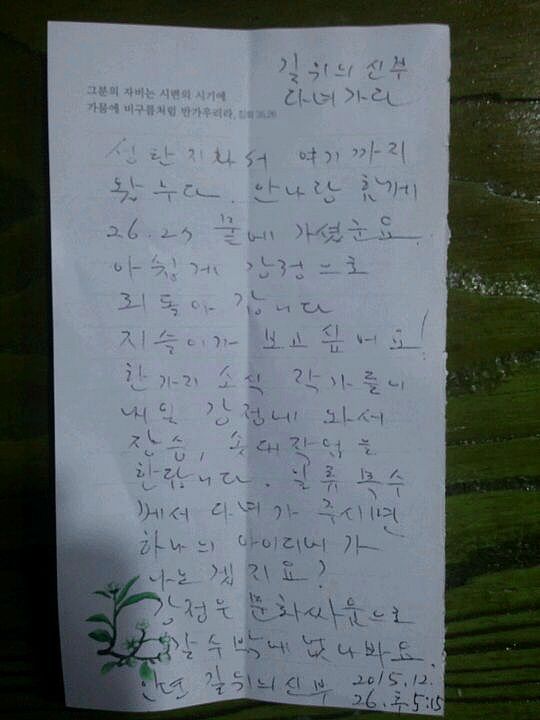 길위의 신부
다녀가다
그분의 자비는 시련의 시기에
가뭄에 비구름처럼 반가우리라. 집회 35,26
성탄 지화서 여기까지
왔누다. 안나랑 함께
26.27 뭍에 가셨군요.
아쉽게 강정으로
되돌아 갑니다
지슬이가 보고싶어요!
한가지 소식 작가들이
내일 강정에 와서
장승, 솟대작업을
한답니다. 일류 목수
께서 다녀가 주시면
하나의 아이디어가
나는 셈지요?
강정은 문화싸움으로
갈수밖에 없나봐요.
안녕 길위의 신부 2015.12.
26. 후 5:15